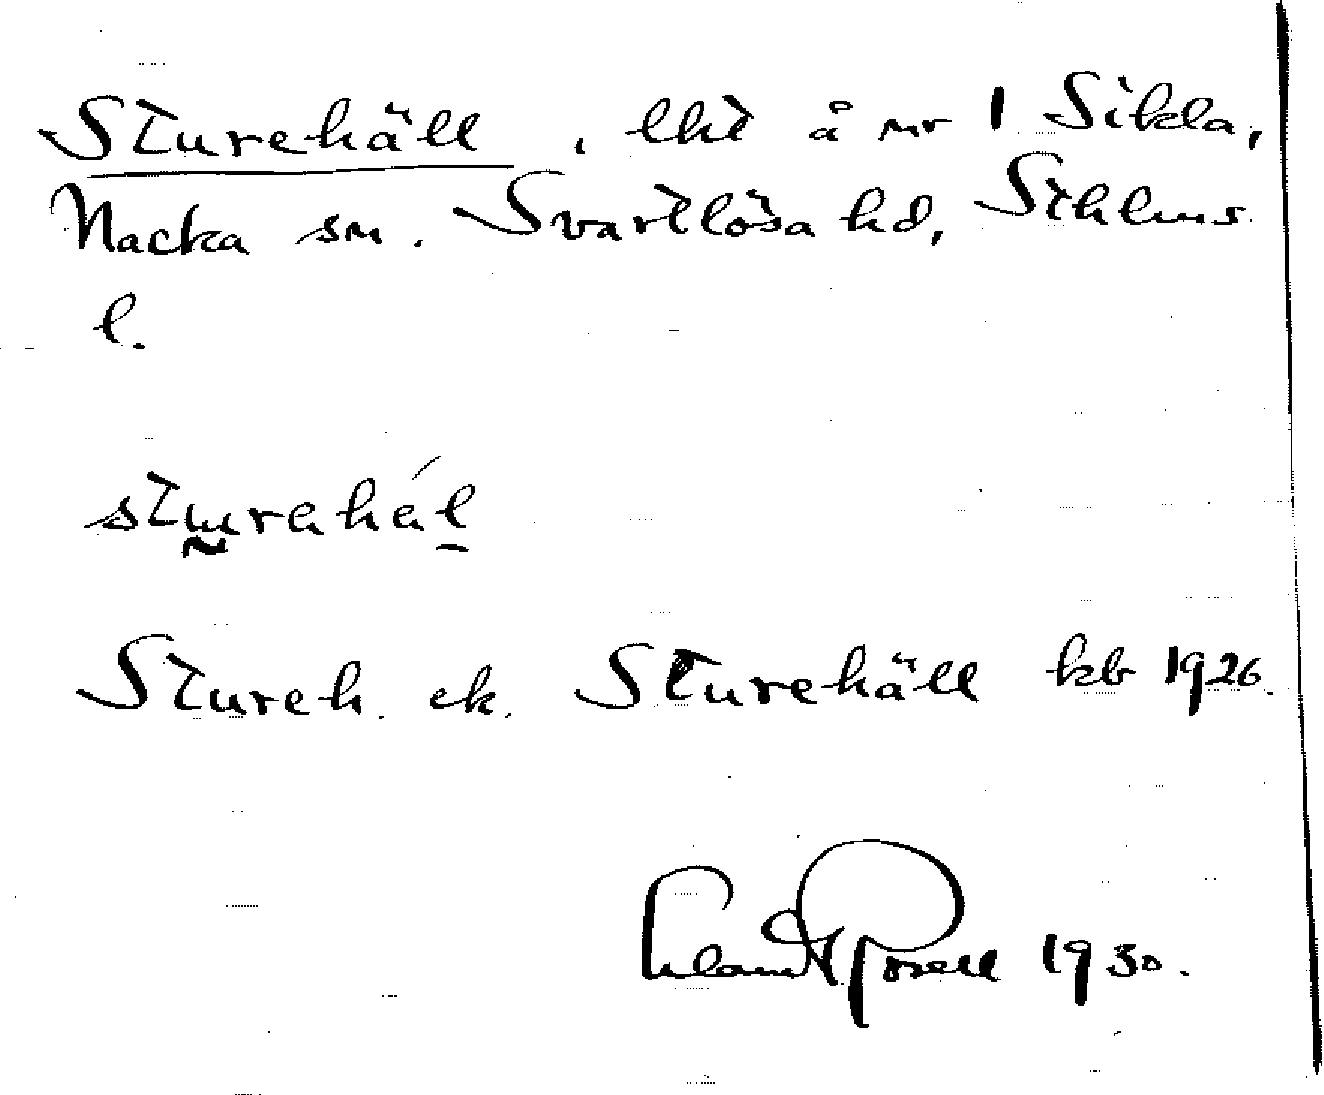 Sturehäll, lht å nr 1 Sikla,
Nacka sn. Svartlösa hd, Sthlms
l.
sturahál
Stureh ek. Sturehäll kb 1926.
Rosell 1930.